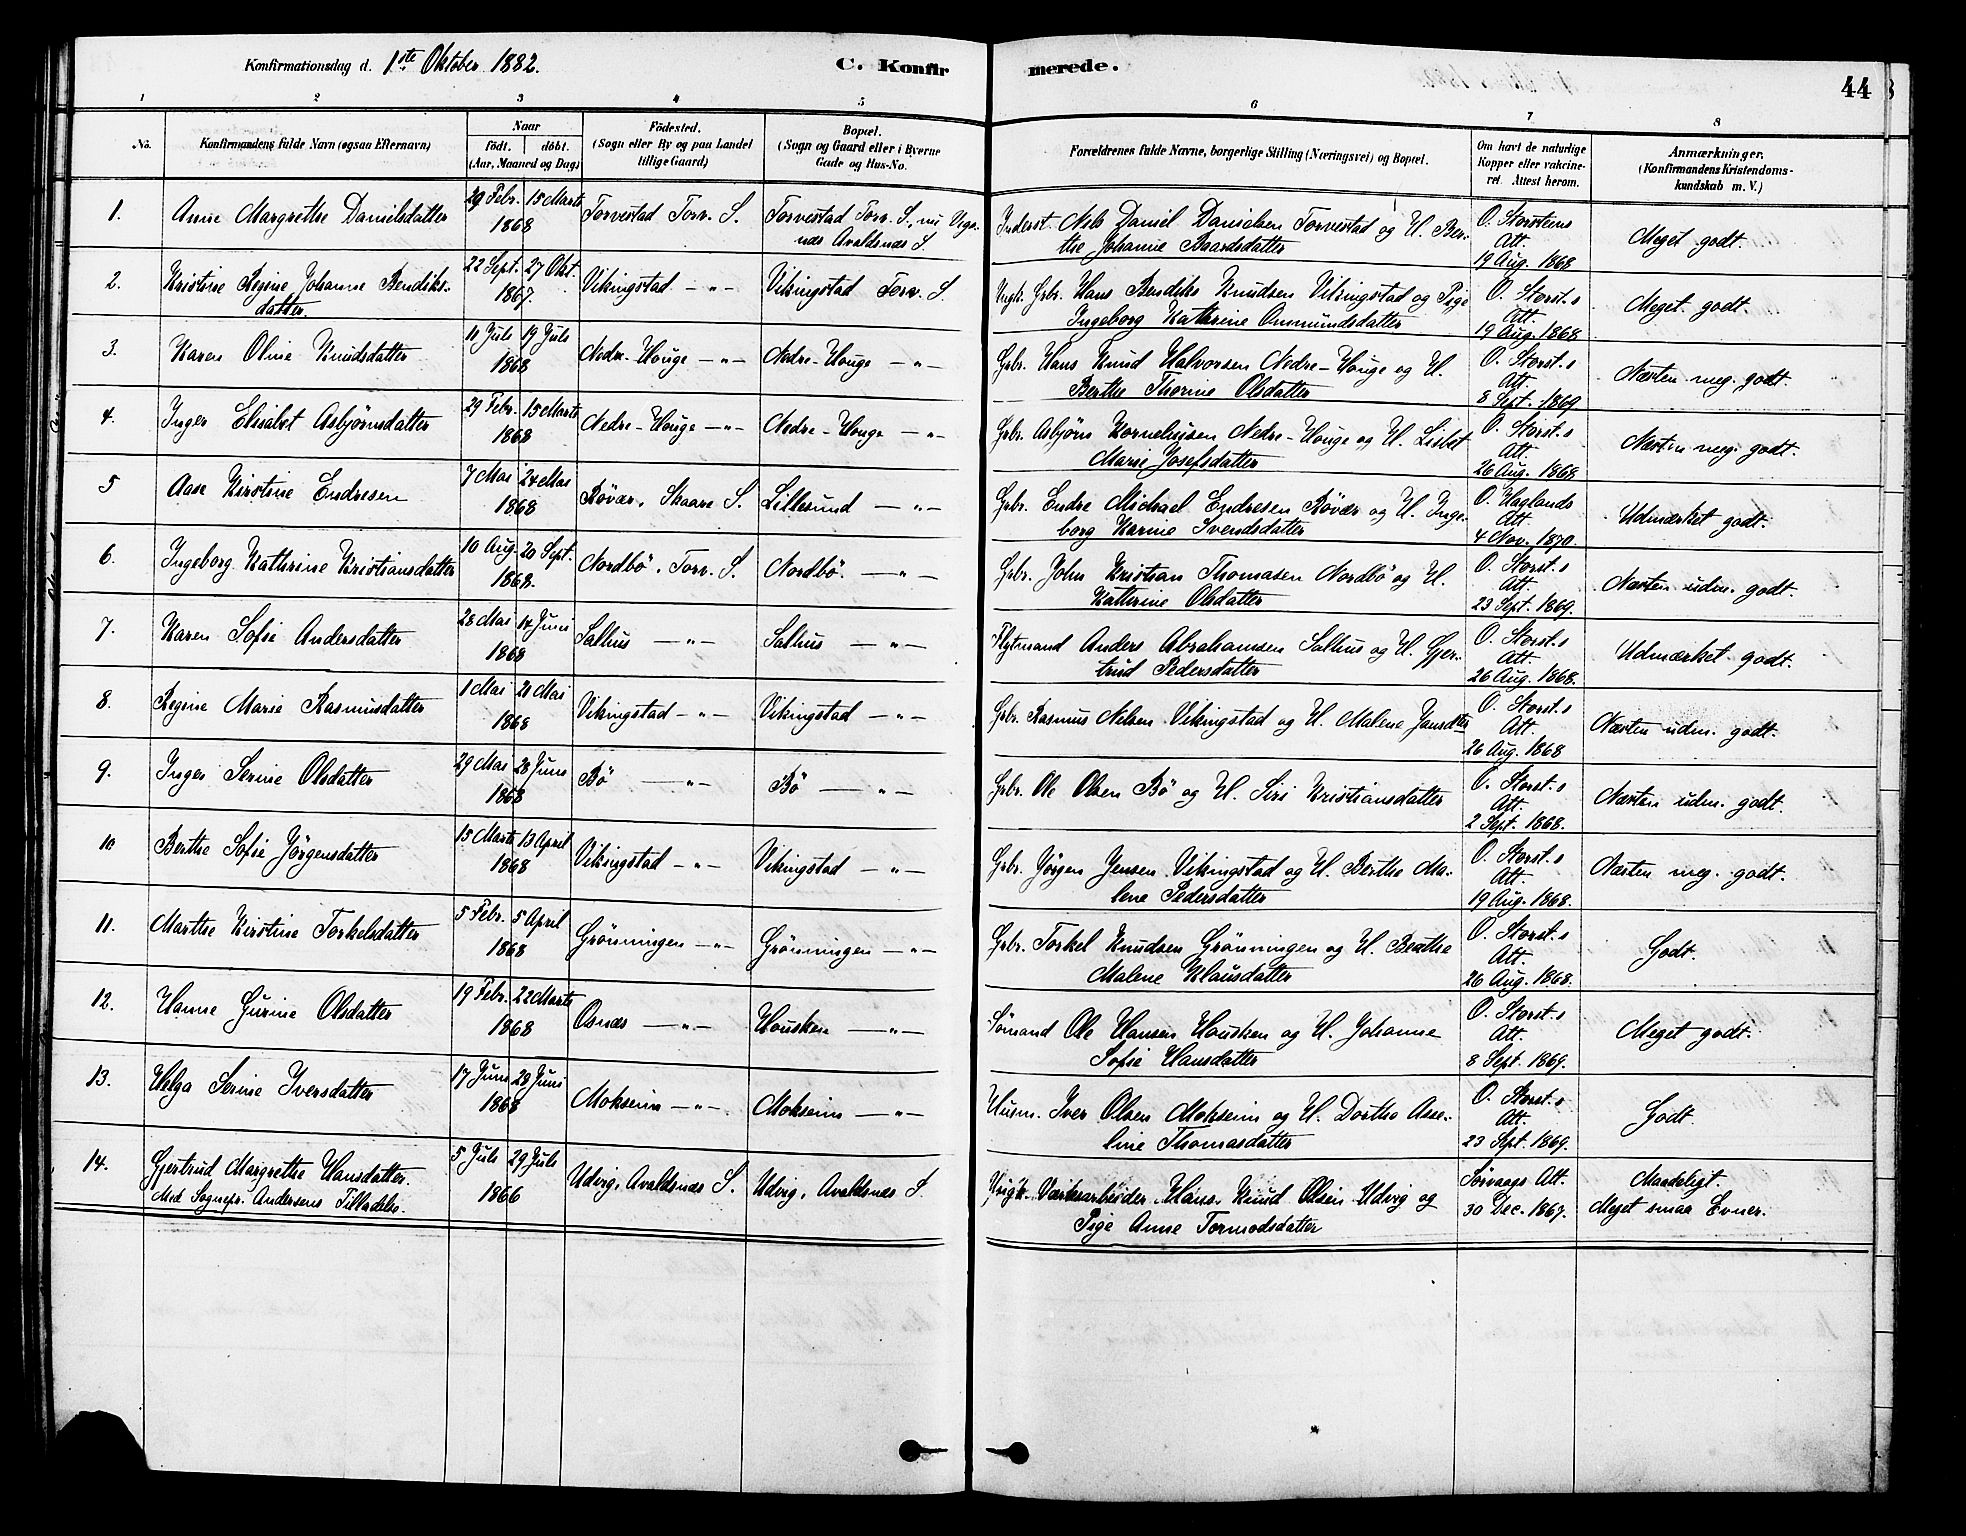 Konfirmationsdag d. 1ste Oktober 1882.
C. Konfirmerede.
44
1 2 3 4 5 6 7 8
No.
Konfirmandens fulde Navn (ogsaa Efternavn)
Naar
födt. döbt.
(Aar, Maaned og Dag)
Födested.
(Sogn eller By og paa Landet
tillige Gaard)
Bopæl.
(Sogn og Gaard eller i Byerne
Gade og Hus-No.
Forældrenes fulde Navne, borgerlige Stilling (Næringsvei) og Bopæl.
Om havt de naturlige
Kopper eller vakcine-
ret. Attest herom.
Anmærkninger.
(Konfirmandens Kristendoms-
kundskab m. V.)
1. Anne Margrethe Danielsdatter 29 Febr. 15 Marts Torvestad Torv. S. Torvestad Torv. S., nu Vigs- Inderst. Nils Daniel Danielsen Torvestad og H. Ber- O. Storsteins Meget godt.
1868 næs Avaldsnæs S the Johanne Baardsdatter Att.
19 Aug. 1868
2. Kristine Regine Johanne Bendiks- 22 Sept. 27 Okt. Vikingstad — " — Vikingstad Torv. S. Ungk. Grbr. Hans Bendiks Knudsen Vikingstad og Pige O. Storst.s Meget godt.
datter. 1867. Ingeborg Kathrine Ommundsdatter Att.
19 Aug. 1868.
3. Karen Oline Knudsdatter 11 Juli 19 Juli Nedre-Houge — " — Nedre-Houge — " — Grbr. Hans Knud Halvorsen Nedre-Houge og H. O. Storst.s Næsten meg. godt.
1868 Berthe Thorine Olsdatter Att.
8 Sept. 1869
4. Inger Elisabet Asbjörnsdatter 29 Febr. 15 Marts Nedre-Houge — " — Nedre-Houge — " — Grbr. Asbjörn Korneliusen Nedre-Houge og H. Lisbet O. Storst.s Næsten meg. godt.
1868 Marie Josefsdatter Att.
26 Aug. 1868.
5 Aase Kirstine Endresen 7 Mai 24 Mai Rövær, Skaare S. Lillesund — " — Grbr. Endre Michael Endresen Rövær og H. Inge- O. Haglands Udmærket godt.
1868 borg Karine Svendsdatter Att.
4 Nov. 1870.
6. Ingeborg Kathrine Kristiansdatter 10 Aug. 20 Sept. Nordbö, Torv. S. Nordbö. — " — Grbr. John Kristian Thomasen Nordbö og H. O. Storst.s Næsten udm. godt.
1868. Kathrine Olsdatter Att.
23 Sept. 1869.
7. Karen Sofie Andersdatter 28 Mai 14 Juni Salhus — " — Salhus — " — Flytmand Anders Abrahamsen Salhus og H. Gjer- O. Storst.s Udmærket godt.
1868 trud Pedersdatter Att.
26 Aug. 1868.
8. Regine Marie Rasmusdatter 1 Mai 21 Mai Vikingstad — " — Vikingstad — " — Grbr. Rasmus Nelsen Vikingstad og H. Malene Jansdtr O. Storst.s Næsten udm. godt.
1868 Att.
26 Aug. 1868
9. Inger Serine Olsdatter 29 Mai 28 Juni Bö — " — Bö — " — Grbr. Ole Olsen Bö og H. Siri Kristiansdatter O. Storst.s Næsten udm. godt.
1868 Att.
2 Sept. 1868.
10 Berthe Sofie Jörgensdatter 15 Marts 13 April Vikingstad — " — Vikingstad — " — Grbr. Jörgen Jensen Vikingstad og H. Berthe Ma- O. Storst.s Næsten meg. godt.
1868 lene Pedersdatter Att.
19 Aug. 1868.
11. Marthe Kirstine Torkelsdatter 5 Febr. 5 April Grönningen — " — Grönningen — " — Grbr. Torkel Knudsen Grönningen og H. Berthe O. Storst.s Godt.
1868 Malene Klausdatter Att.
26 Aug. 1868.
12. Hanne Gurine Olsdatter 19 Febr. 22 Marts Osnæs — " — Housken — " — Sömand Ole Hansen Housken og H. Johanne O. Storst.s Meget godt.
1868 Sofie Hansdatter Att.
8 Sept. 1869.
13. Helga Serine Iversdatter 17 Juni 28 Juni Mokseim — " — Mokseim — " — Husm. Iver Olsen Mokseim og H. Dorthe Asse- O. Storst.s Godt.
1868 line Thomasdatter Att.
23 Sept. 1869.
14. Gjertrud Margrethe Hansdatter. 5 Juli 29 Juli Udvig, Avaldsnæs S. Udvig, Avaldsnæs S. Ungk. Værksarbeider Hans Knud Olsen Udvig og Sörvaags Att. Maadeligt.
Med Sognepr. Andersens Tilladelse. 1866 Pige Anne Tormodsdatter 30 Dec. 1867. Meget smaa Evner.